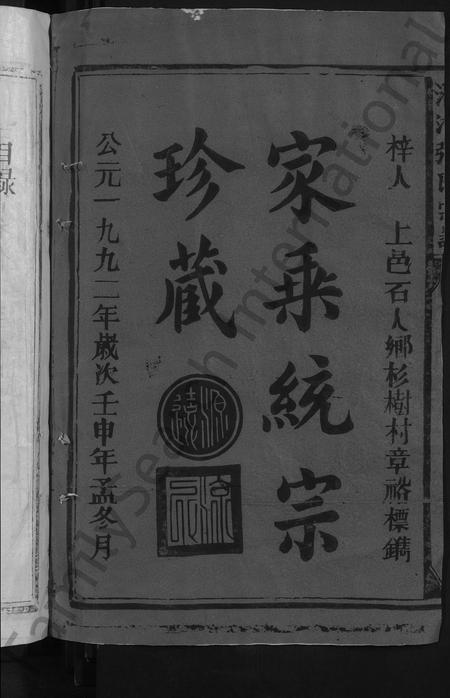 梓人 上邑石人鄉杉樹村章裕標鐫
家乘統宗
珍藏
源遠
流長
公元一九九二年歲次壬申年孟冬月
目録
FamilySearch International